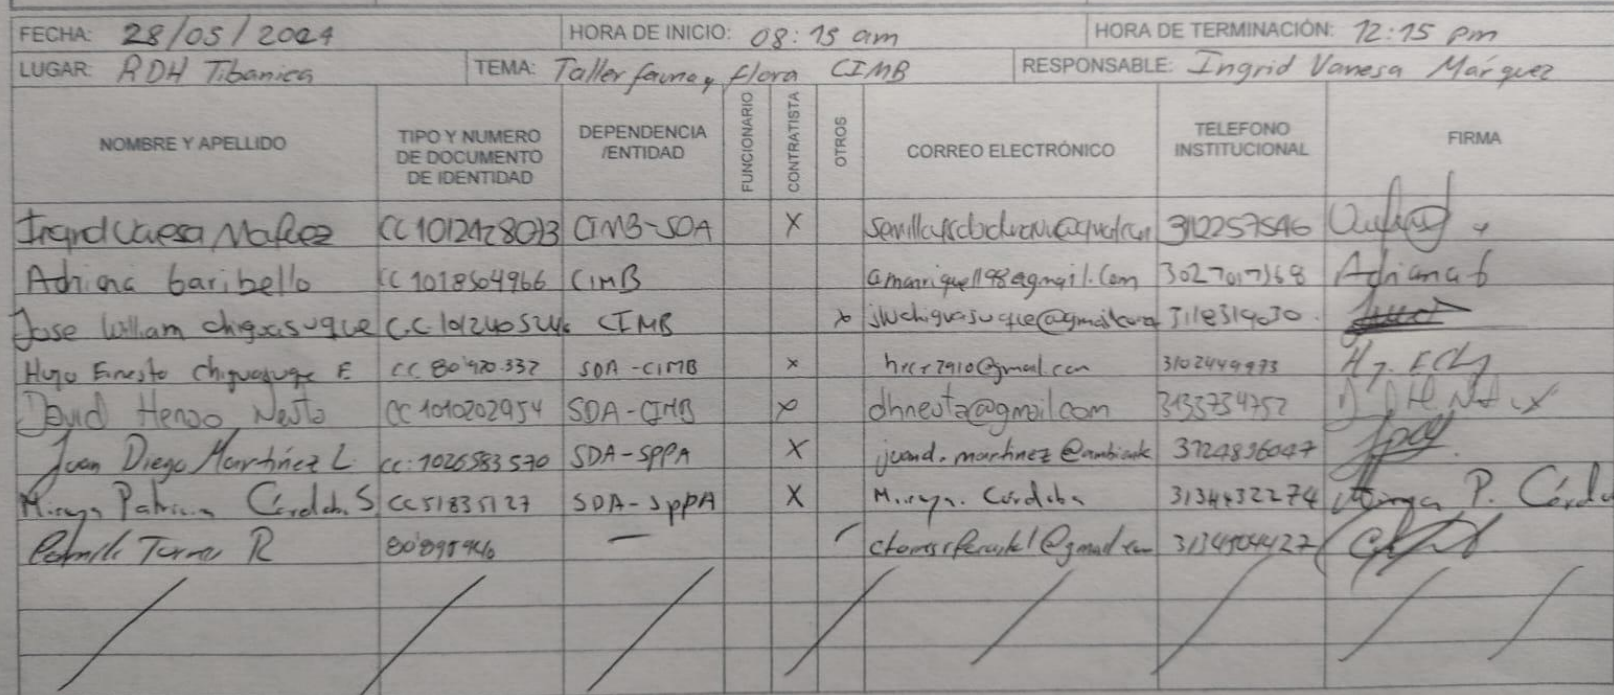 FECHA: 28/05/2024 HORA DE INICIO: 08:15 am HORA DE TERMINACIÓN: 12:15 pm
LUGAR: RDH Tibanica TEMA: Taller fauna y flora CIMB RESPONSABLE: Ingrid Vanesa Márquez
NOMBRE Y APELLIDO TIPO Y NUMERO DE DOCUMENTO DE IDENTIDAD DEPENDENCIA /ENTIDAD FUNCIONARIO CONTRATISTA OTROS CORREO ELECTRÓNICO TELEFONO INSTITUCIONAL FIRMA
Ingrid CC CIMB-SDA X 3102257546
Adriana Garibello CC 1018504966 CIMB amanrique1198@gmail.com 3027017368 Adriana G
Jose William chiguasuque C.C. CIMB x jwchiguasuque@gmail.com
Hugo Ernesto Chiguasuque E CC 80'920.332 SDA-CIMB x 3102449973
David Henao Neuta CC 1010202954 SDA-CIMB x dhneuta@gmail.com 3133734752
Juan Diego Martínez L. CC: 1026583570 SDA-SPPA X juand.martinez@ambiente 3124896047
Mireya Patricia Córdoba S CC 51835127 SDA-SPPA X Mireya.Cordoba 3134432274 Mireya P. Córdo
R — 3134504427